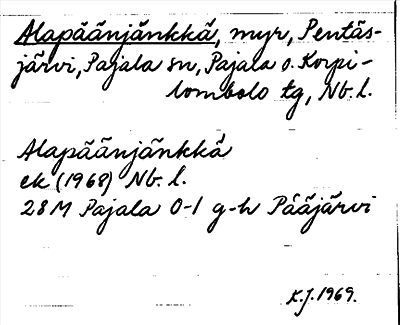 Alapäänjänkkä, myr, Pentäs-
järvi, Pajala sn, Pajala o. Korpi-
lombolo tg, Nb. l.
Alapäänjänkkä
ek (1968) Nb. l.
28M Pajala 0-1 g-h Pääjärvi
K.J. 1969.